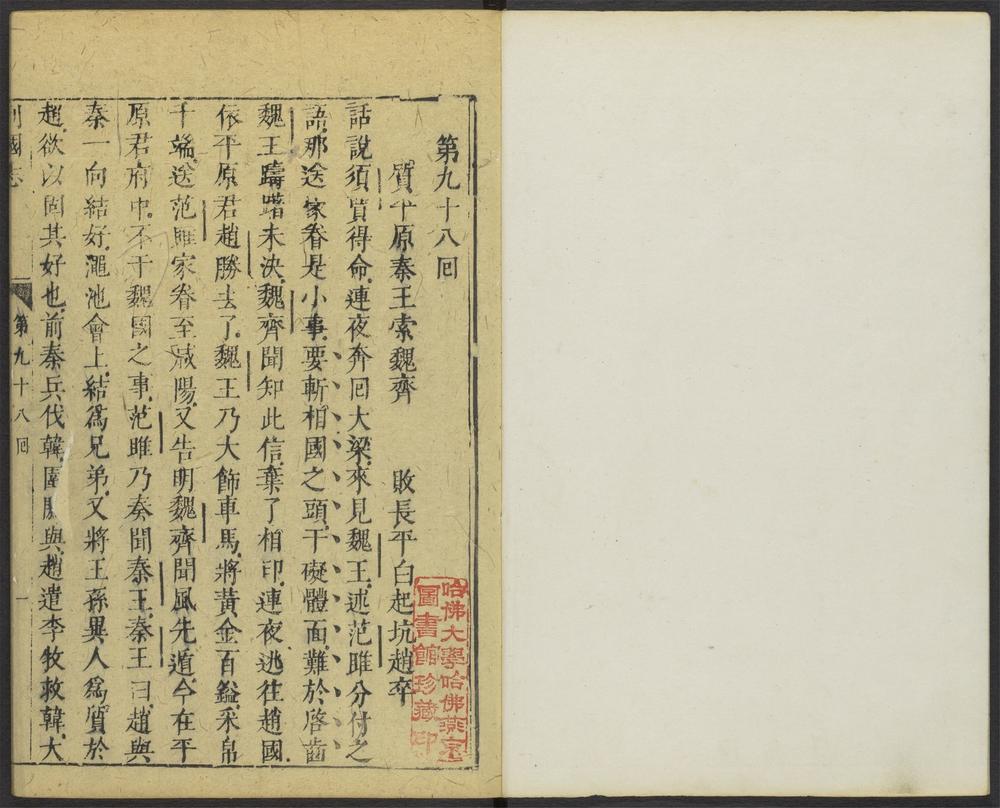 第九十八回
質平原秦王索魏齊 敗長平白起坑趙卒
話說須賈得命連夜奔回大梁來見魏王述范雎分付之
語那送家眷是小事要斬相國之頭干礙體面難於啓齒
魏王躊躇未決魏齊聞知此信棄了相印連夜逃往趙國
依平原君趙勝去了魏王乃大飾車馬將黃金百鎰采帛
千端送范雎家眷至咸陽又告明魏齊聞風先遁今在平
原君府中不干魏國之事范雎乃奏聞秦王秦王曰趙與
秦一向結好澠池會上結爲兄弟又將王孫異人爲質於
趙欲以固其好也前秦兵伐韓圍閼與趙遣李牧救韓大
列國志 第九十八回 一
哈佛大學哈佛燕京
圖書館珍藏印